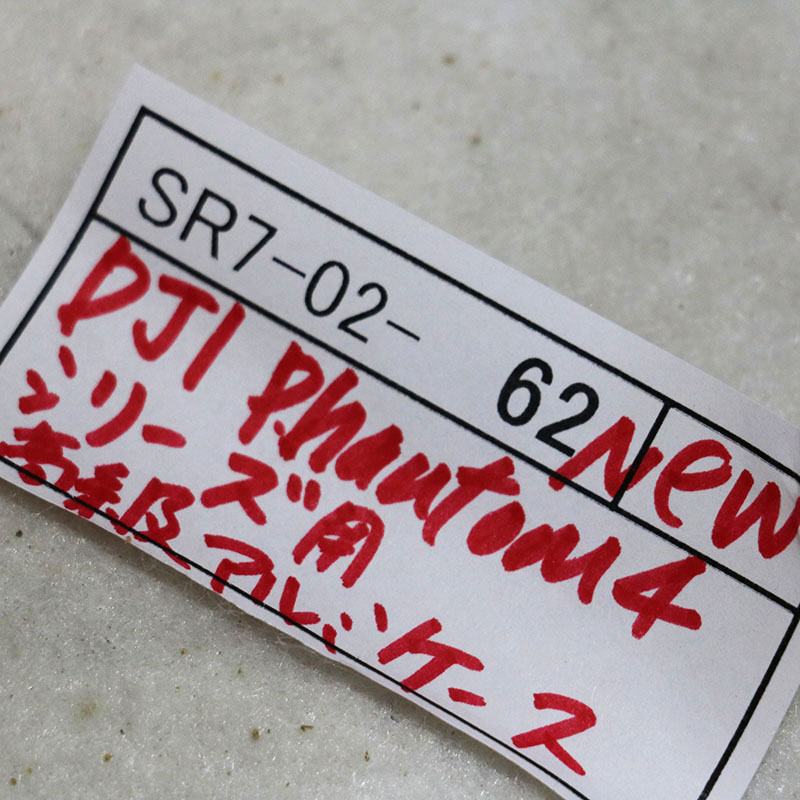 SR7-02- 62 New
DJI Phantom4
シリーズ用
高級アルミケース